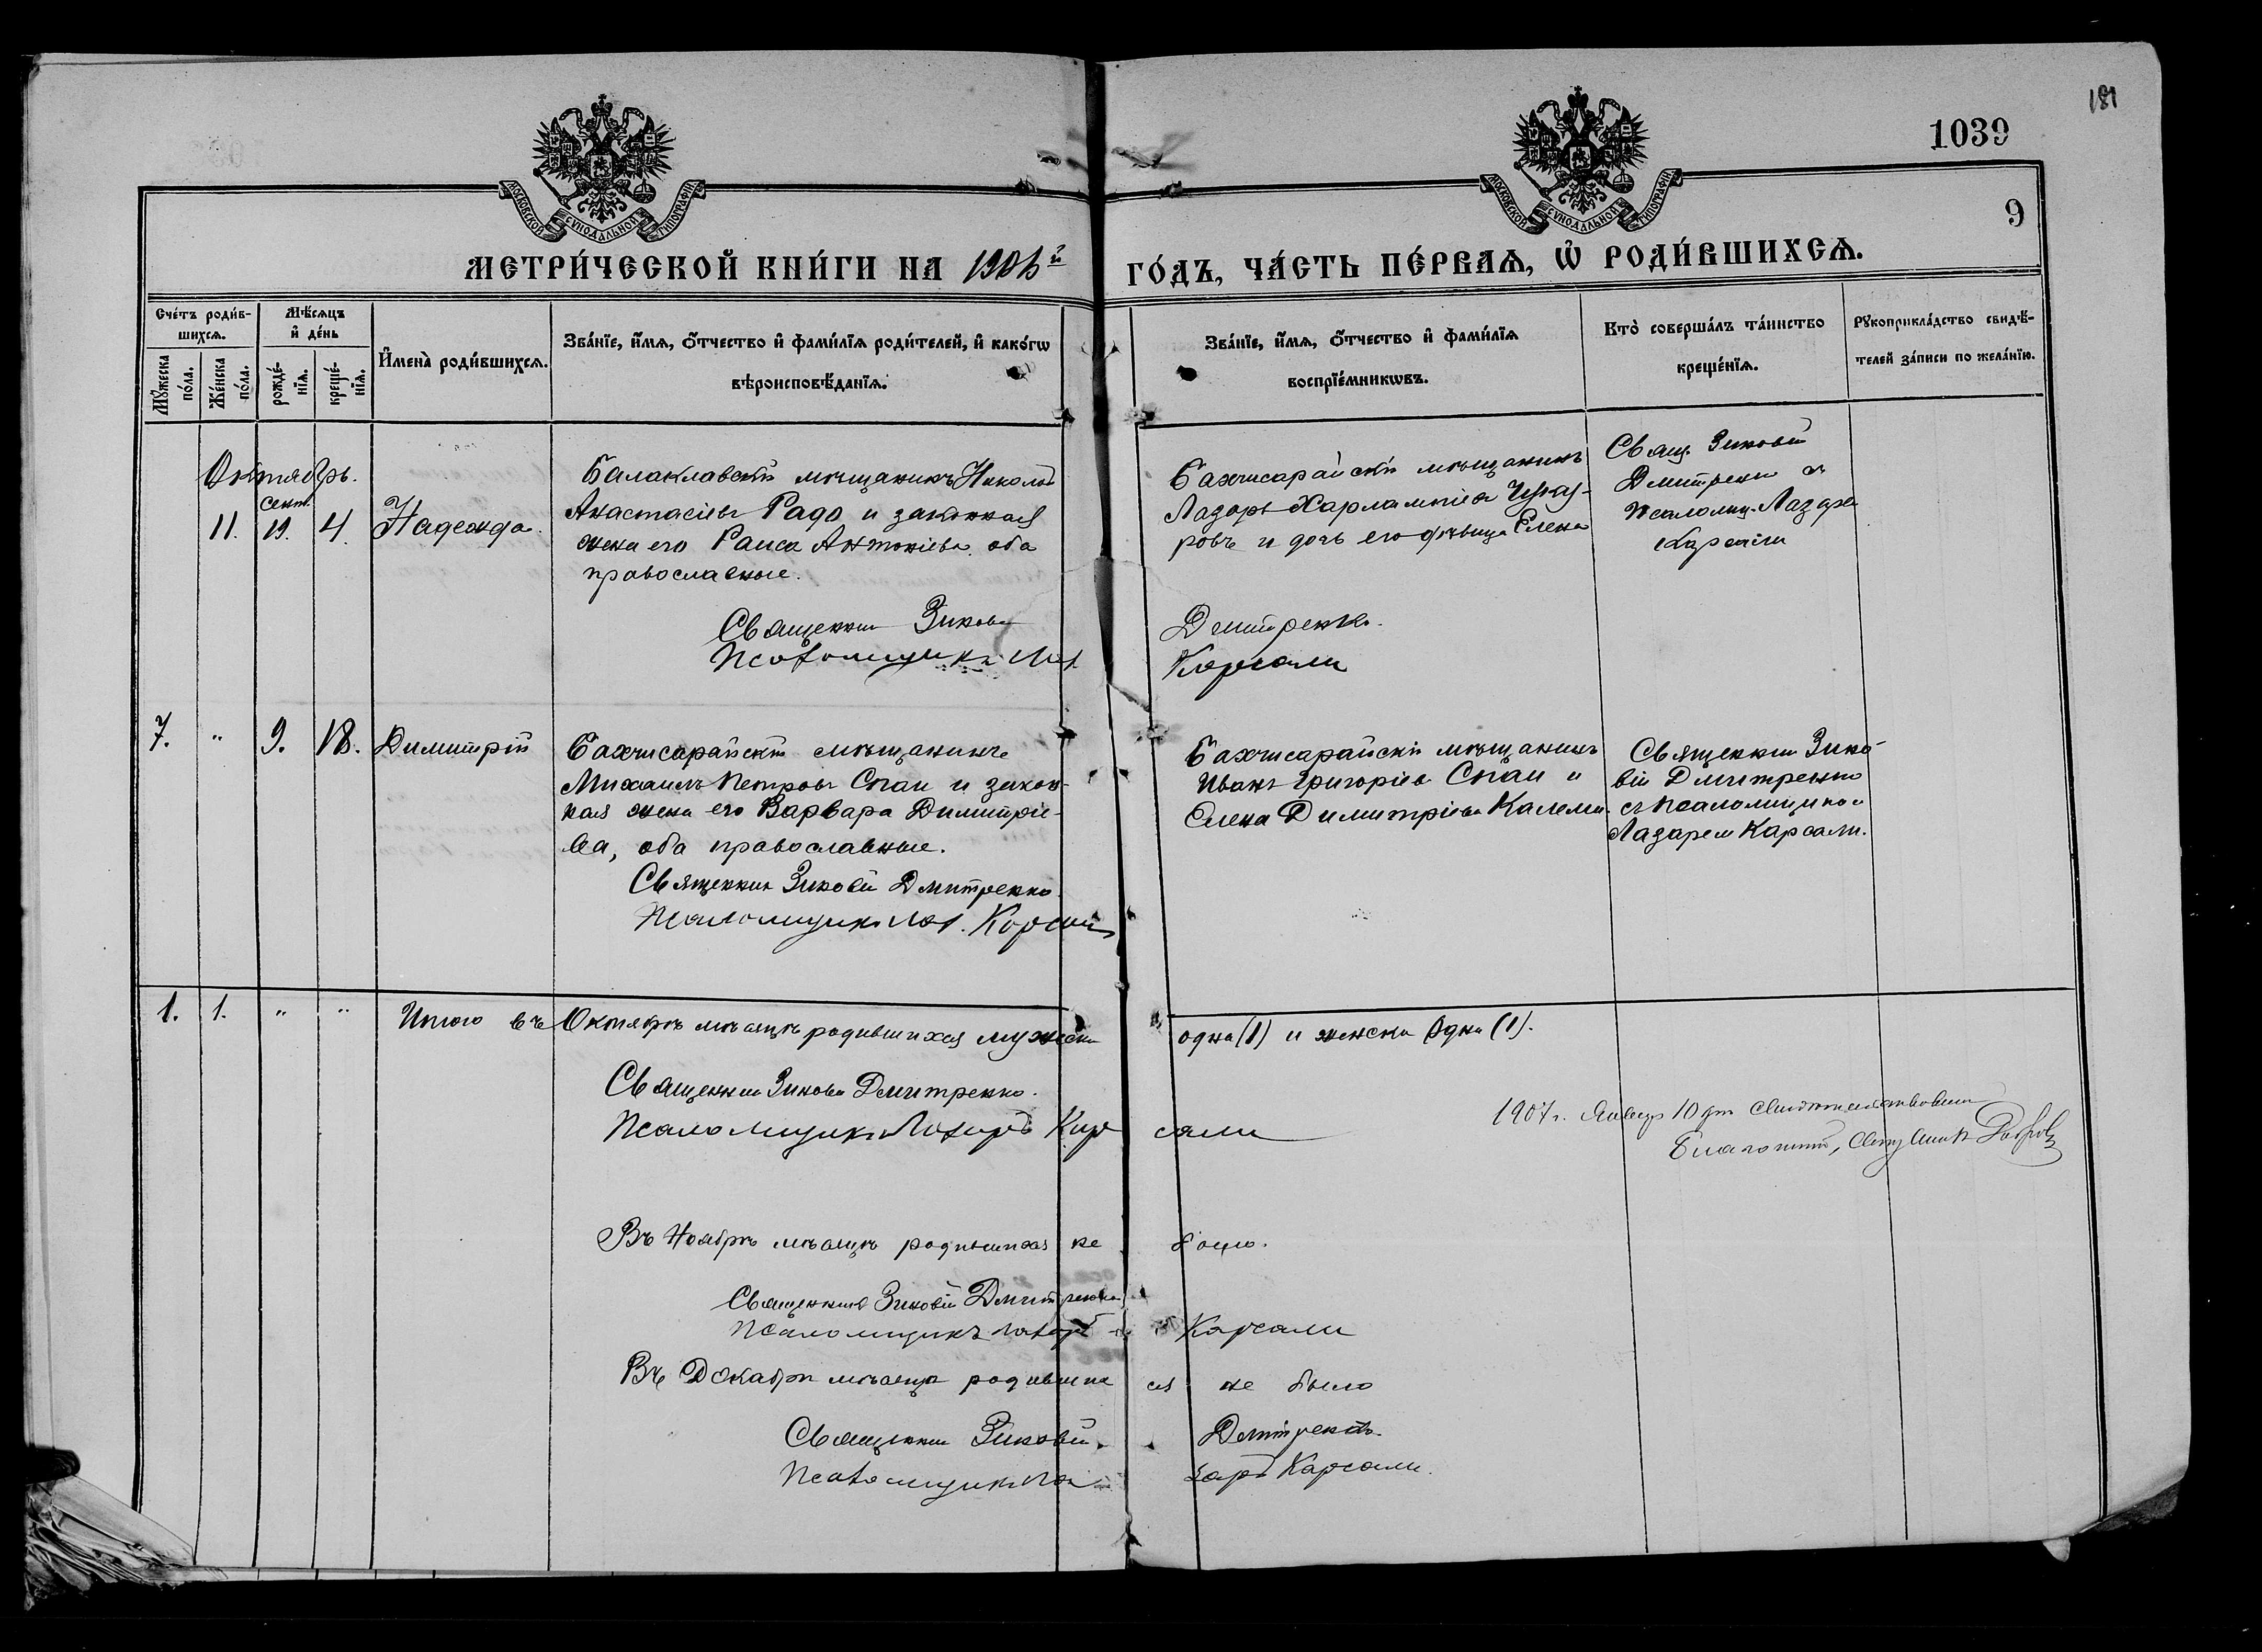 181
1039
9
МОСКОВСКОЙ СѴНОДАЛЬНОЙ ТИПОГРАФІИ
МОСКОВСКОЙ СѴНОДАЛЬНОЙ ТИПОГРАФІИ
МЕТРИ́ЧЕСКОЙ КНИ́ГИ НА 1906й ГО́ДЪ, ЧА́СТЬ ПЕ́РВАѦ, Ѡ҆ РОДИ́ВШИХСѦ.
Сче́тъ роди́в-
шихсѧ.
Мꙋ́жеска по́ла.
Же́нска по́ла.
Мѣ́сѧцъ и҆ де́нь
рожде́-
нїѧ.
креще́-
нїѧ.
И҆мена̀ роди́вшихсѧ.
Зва́нїе, и҆́мѧ, ѻ҆́тчество и҆ фами́лїѧ роди́телей, и҆ како́гѡ
вѣроисповѣ́данїѧ.
Зва́нїе, и҆́мѧ, ѻ҆́тчество и҆ фами́лїѧ
воспрїе́мникѡвъ.
Кто̀ соверша́лъ та́инство
креще́нїѧ.
Рꙋкоприкла́дство свидѣ́-
телей за́писи по жела́нїю.
Октябрь.
11. сент. 19. 4. Надежда.
Балаклавскій мѣщанинъ Николай
Анастасіевъ Радо и законная
жена его Раиса Антоніева оба
православные.
Священник Зиновій Дмитренко.
Псаломщикъ Лаз. Карсали
Бахчисарайскій мѣщанинъ
Лазарь Харлампіев
ровъ и дочь его дѣвица Елена
Свящ. Зиновій
Дмитренко съ
псаломщ. Лазаре
Карсали
7. " 9. 18. Димитрій
Бахчисарайскій мѣщанинъ
Михаилъ Петровъ Спаи и закон-
ная жена его Варвара Димитріе-
ва, оба православные.
Священник Зиновій Дмитренко
Псаломщикъ Лаз. Карсали
Бахчисарайскій мѣщанинъ
Иванъ Григоріев Спаи и
Елена Димитріева
Священник Зино-
вій Дмитренко
съ псаломщиком
Лазарем Карсали.
1. 1. " " Итого въ Октябрѣ мѣсяцѣ родившихся мужска одна (1) и женска одна (1).
Священник Зиновій Дмитренко.
Псаломщикъ Лазарь Карсали
1907 г. Январ 10 дня свидѣтельствовалъ
Благочин., Свящ
Въ Ноябрѣ мѣсяцѣ родившихся не было.
Священникъ Зиновій Дмитренко
Псаломщикъ Лазарь Карсали
Въ Декабрѣ мѣсяцѣ родившихся не было
Священник Зиновій Дмитренко.
Псаломщикъ Лазарь Карсали.